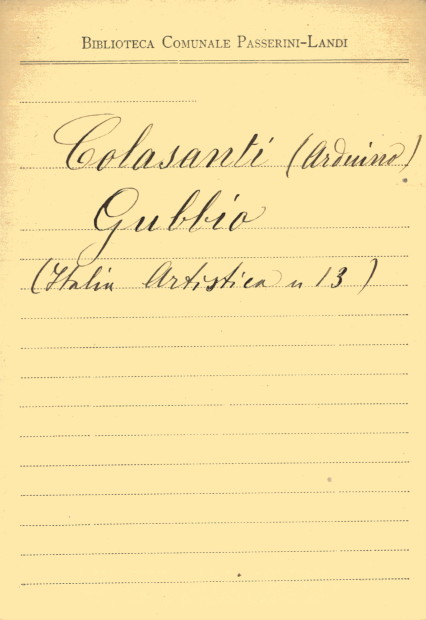 BIBLIOTECA COMUNALE PASSERINI-LANDI
Colasanti (Arduino)
Gubbio
(Italia Artistica n 13)